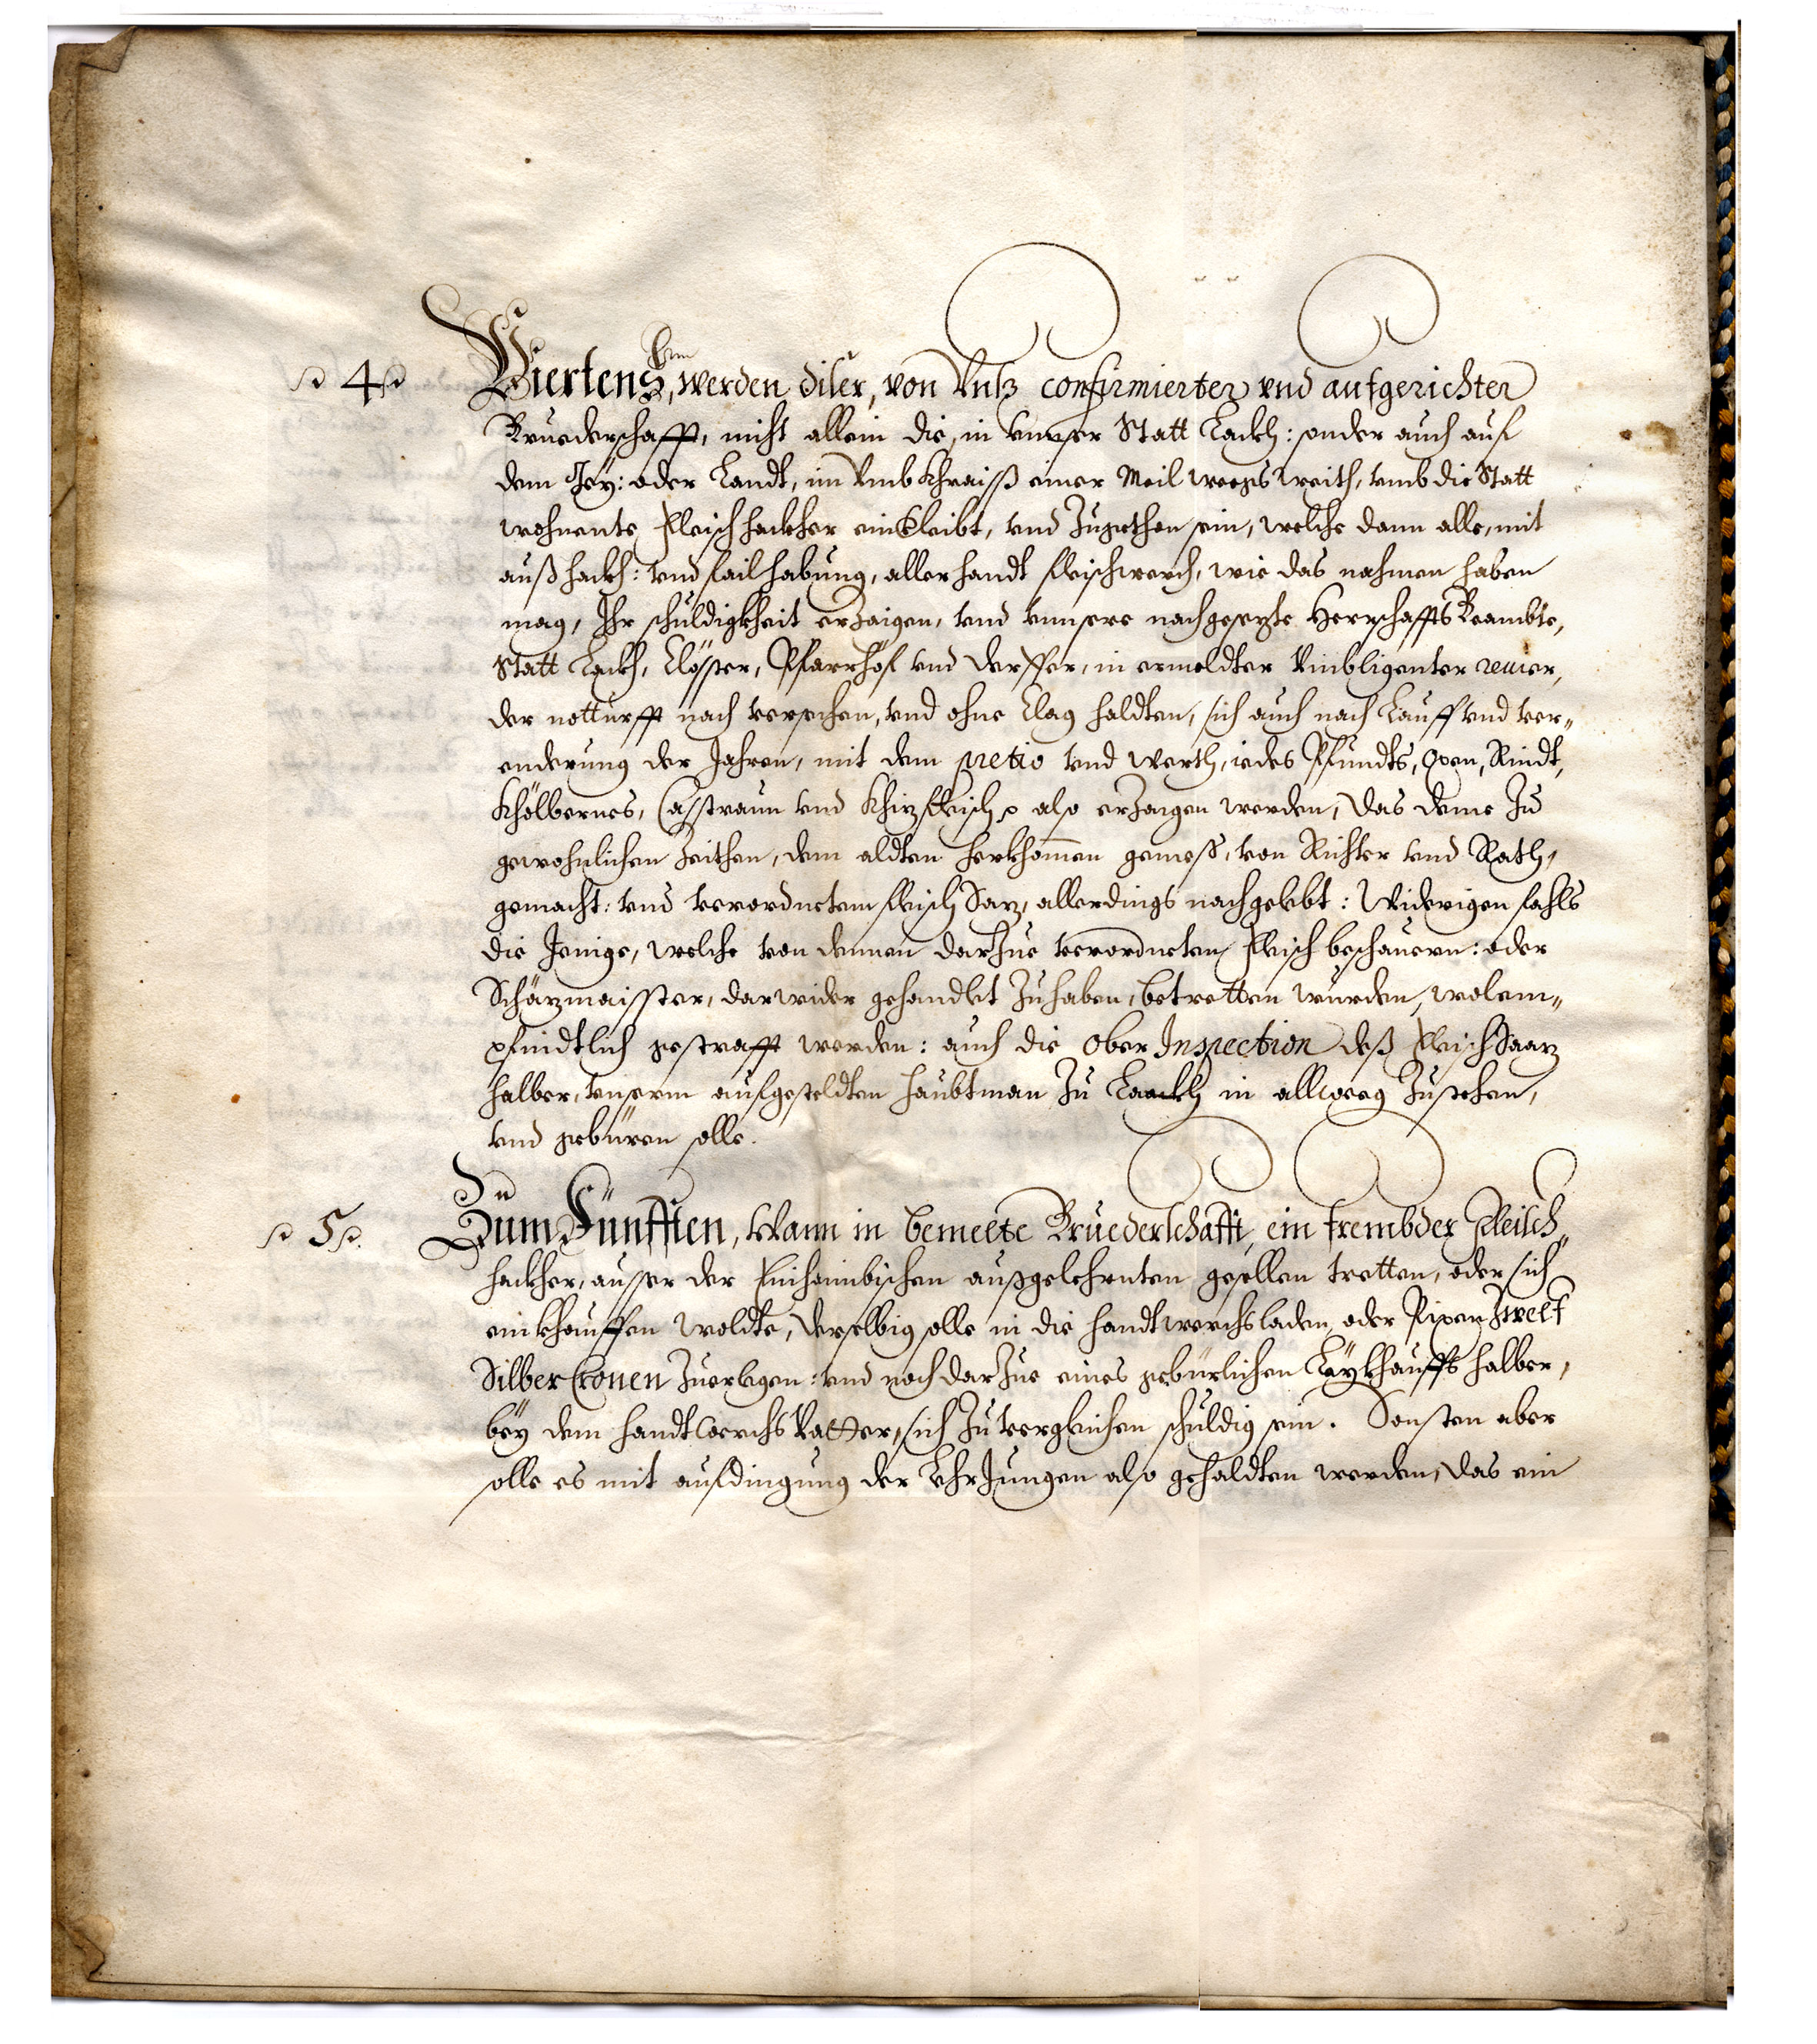 4
Viertens, werden diser, von Vnß confirmierter vnd aufgerichter
Bruederschafft, nicht allein die, in vnnser Statt Lackh: sonder auch auf
dem Jey: oder Landt, im Vmbkhraiß einer Meil weegs weith, vmb die Statt
wohnente Fleischhackher einkleibt, vnd Zugethon sein, welche dann alle, mit
außhackh: vnd failhabung, allerhandt fleischwerch, wie das nahmen haben
mag, Ihr schuldigkheit erzaigen, vnd vnnsere nachgesezte Herrschaffts Beambte,
Statt Lackh, Clöster, Pfarrhöf vnd derffer, in ermeldter Vmbligenter reuier,
der notturfft nach versehen, vnd ohne Clag haldten, sich auch nach Lauff vnd ver„
enderung der Jahren, mit dem pretio vnd werth, iedes Pfundts, Oxen, Rindt,
Khölbernes, Casstraun vnd Khizfleisch also erzaigen werden, das deme Zu
gewohnlichen Zeithen, dem aldten herkhomen gemeß, von Richter vnd Rath,
gemacht: vnd verordnetem fleisch Saz, allerdings nachgelebt: Widerigen fahls
die Jenige, welche von dennen darzue verordneten fleischbeschauern: oder
Schäzmaisster, darwider gehandlet Zuhaben, betretten wurden, wolem„
pfindtlich gestrafft werden: auch die Ober Inspection deß fleisch Saaz
halber, vnserm aufgesteldten haubtman Zu Laackh in allweeg Zustehen,
vnd gebüren solle.
5
Zum Fünfften, Wann in bemelte Bruederschafft, ein frembder Fleisch„
hackher, ausser der Einhaimbischen außgelehrnten gesellen tretten, oder sich
einkhauffen woldte, derselbig solle in die handtwerchsladen, oder Pixen Zwelf
Silber Cronen Zuerlegen: vnd noch darzue eines gebürlichen Leykhauffs halber,
bey dem handtwerchs Vatter, sich Zuvergleichen schuldig sein. Sonsten aber
solle es mit aufdingung der LehrJungen also gehaldten werden, das ein